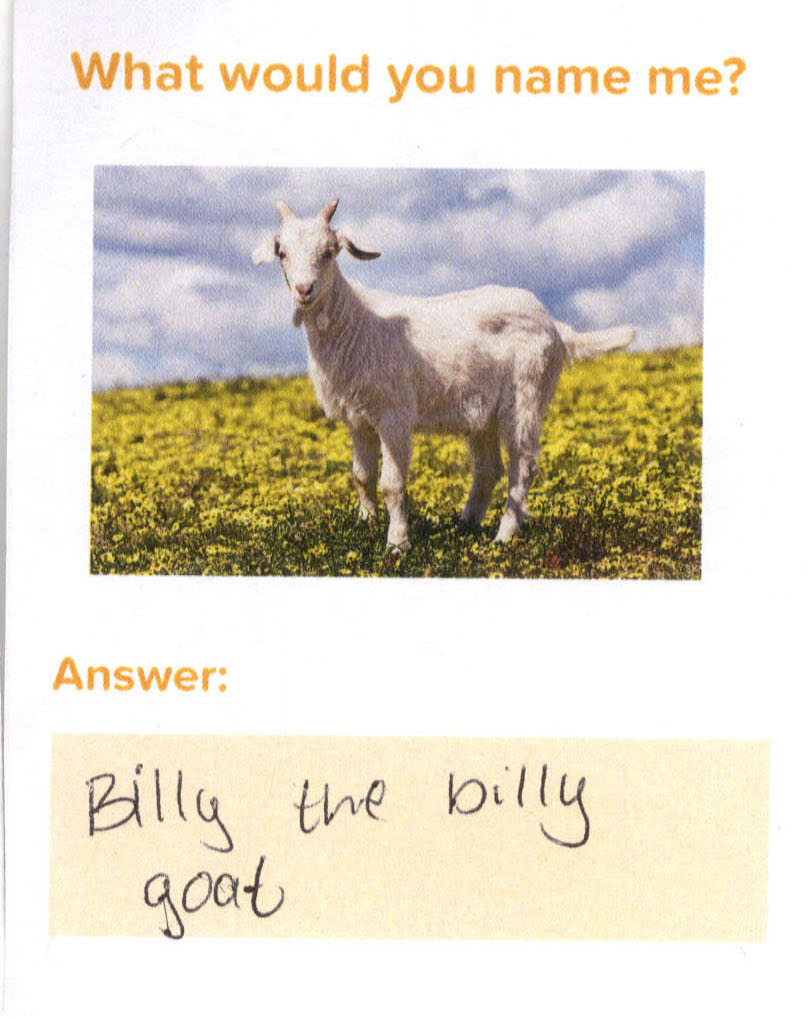 What would you name me?
Answer:
Billy the billy
goat